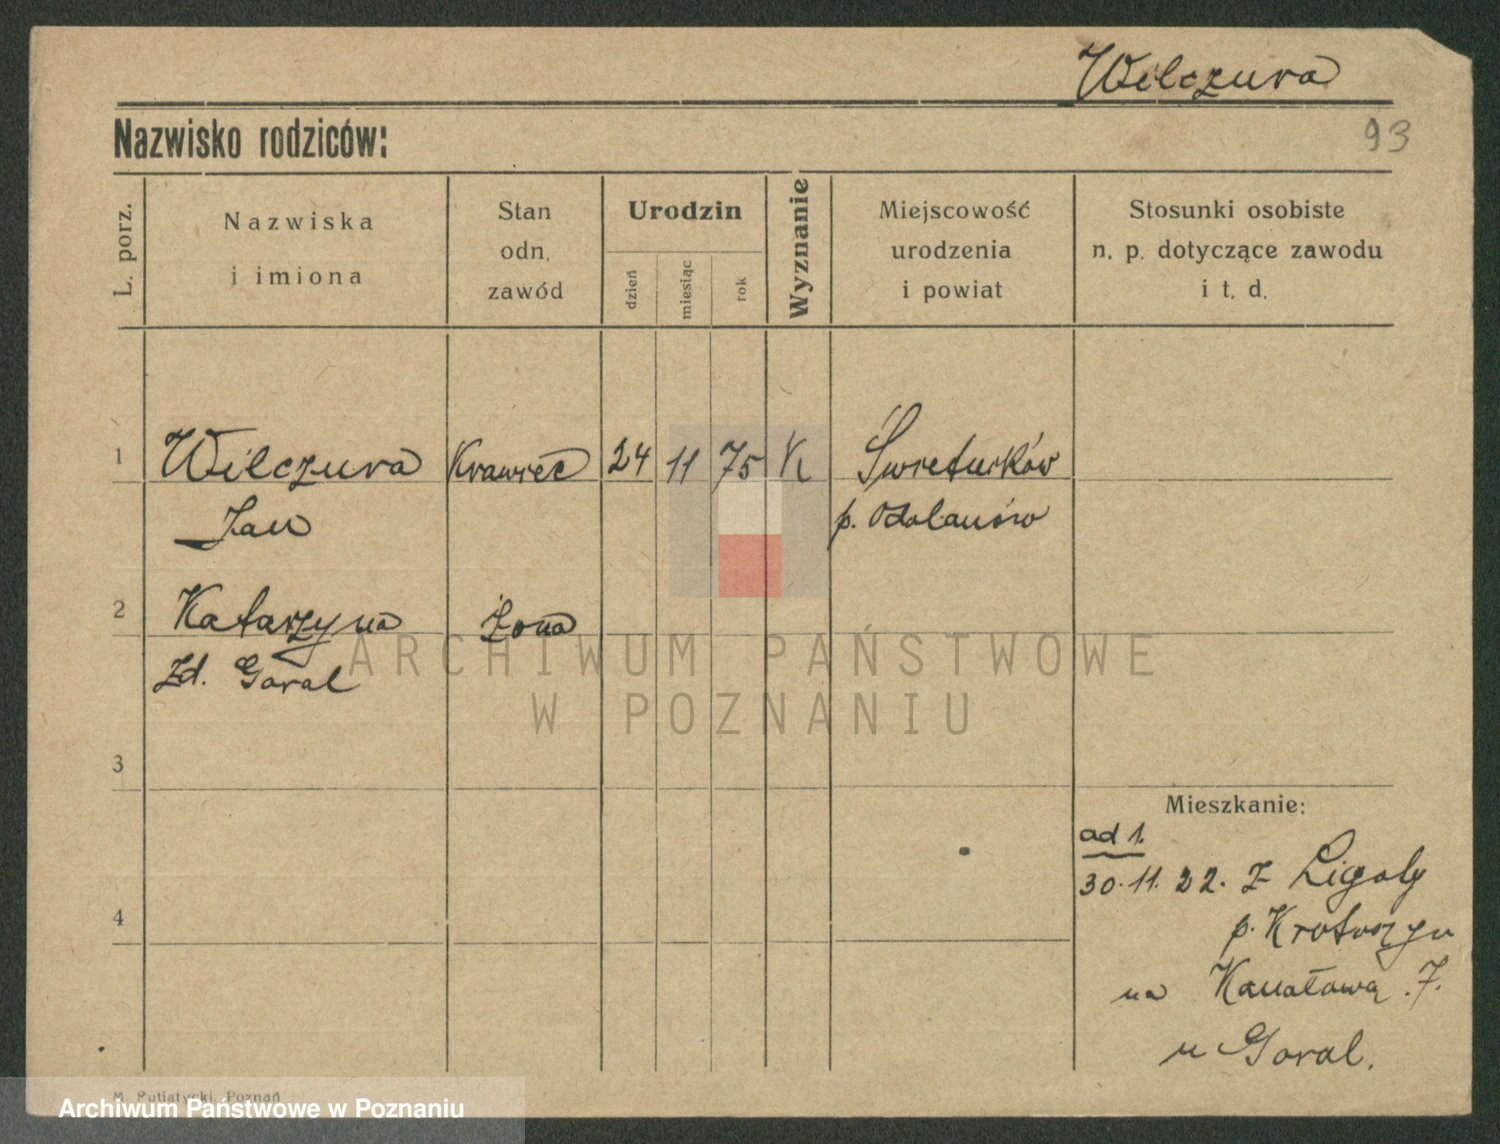 Wilczura
Nazwisko rodziców:
93
L. porz.
Nazwiska
i imiona
Stan
odn.
zawód
Urodzin
dzień
miesiąc
rok
Wyznanie
Miejscowość
urodzenia
i powiat
Stosunki osobiste
n. p. dotyczące zawodu
i t. d.
1 Wilczura Krawiec 24 11 75 K Świeturków
Jan p. Odolanów
2 Katarzyna Żona
zd. Goral
3
Mieszkanie:
ad 1.
30.11.22. z Ligoty
p. Krotoszyn
4
na Kanałową 7.
u Goral.
M. Putiatycki, Poznań
ARCHIWUM PAŃSTWOWE
W POZNANIU
Archiwum Państwowe w Poznaniu